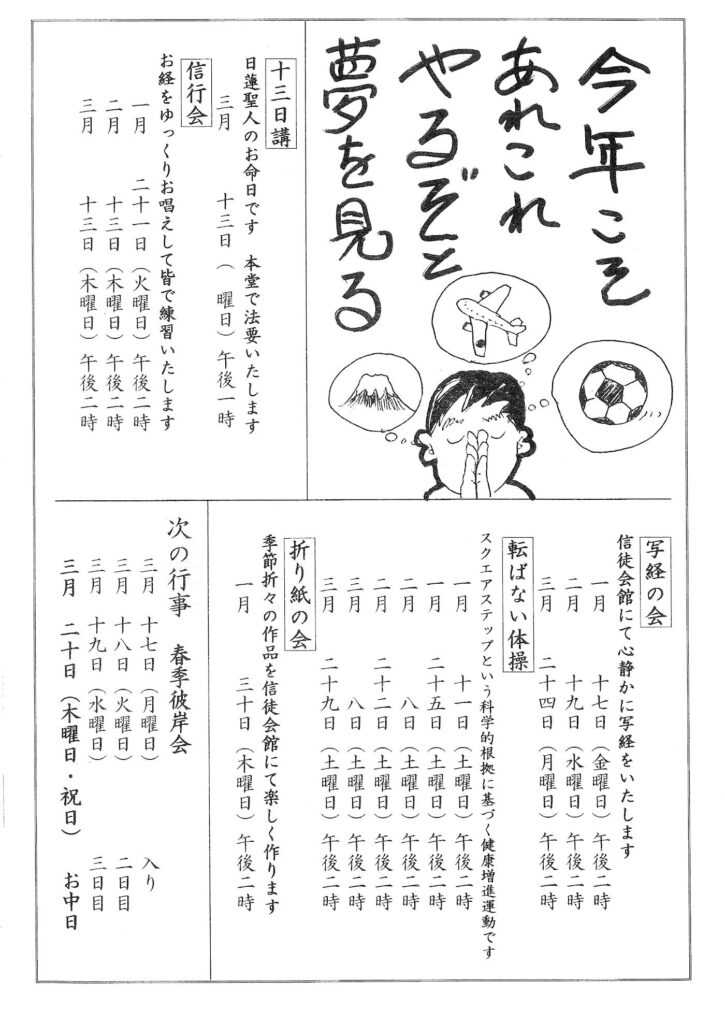 今年こそ
あれこれ
やるぞと
夢を見る
十三日講
日蓮聖人のお命日です　本堂で法要いたします
三月　十三日（　曜日）午後一時
信行会
お経をゆっくりお唱えして皆で練習いたします
一月　二十一日（火曜日）午後二時
二月　十三日（木曜日）午後二時
三月　十三日（木曜日）午後二時
写経の会
信徒会館にて心静かに写経をいたします
一月　十七日（金曜日）午後二時
二月　十九日（水曜日）午後二時
三月　二十四日（月曜日）午後二時
転ばない体操
スクエアステップという科学的根拠に基づく健康増進運動です
一月　十一日（土曜日）午後二時
一月　二十五日（土曜日）午後二時
二月　八日（土曜日）午後二時
二月　二十二日（土曜日）午後二時
三月　八日（土曜日）午後二時
三月　二十九日（土曜日）午後二時
折り紙の会
季節折々の作品を信徒会館にて楽しく作ります
一月　三十日（木曜日）午後二時
次の行事　春季彼岸会
三月　十七日（月曜日）　入り
三月　十八日（火曜日）　二日目
三月　十九日（水曜日）　三日目
三月　二十日（木曜日・祝日）　お中日